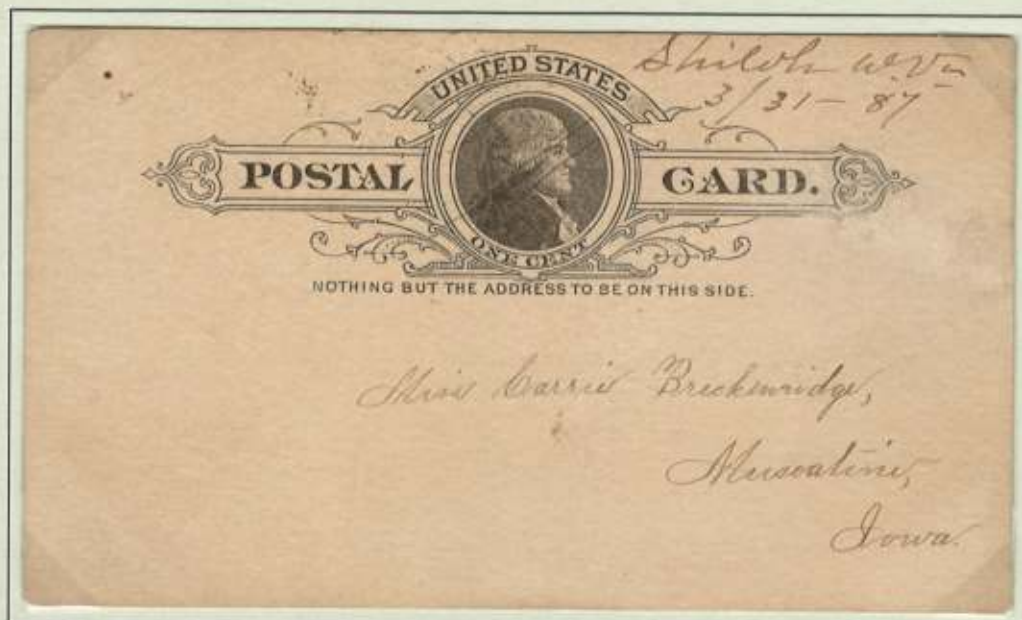 Shiloh W Va
3/31-87
UNITED STATES
POSTAL CARD.
ONE CENT
NOTHING BUT THE ADDRESS TO BE ON THIS SIDE.
Miss Carrie Breckenridge,
Muscatine,
Iowa.